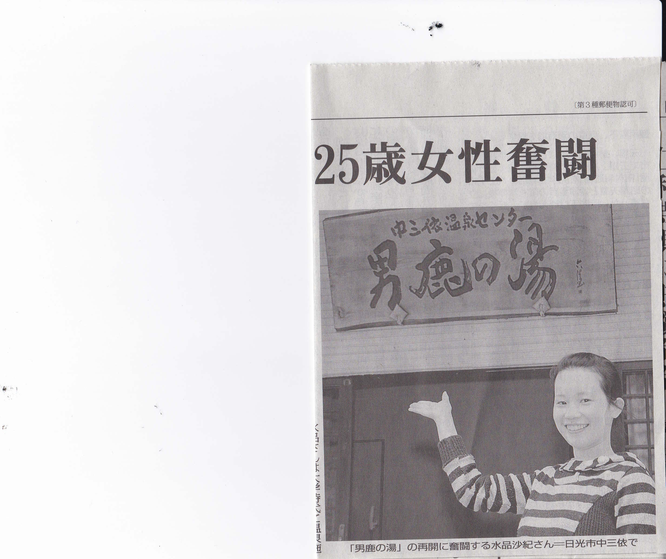 〔第3種郵便物認可〕
25歳女性奮闘
中三依温泉センター
男鹿の湯
「男鹿の湯」の再開に奮闘する水品沙紀さん=日光市中三依で